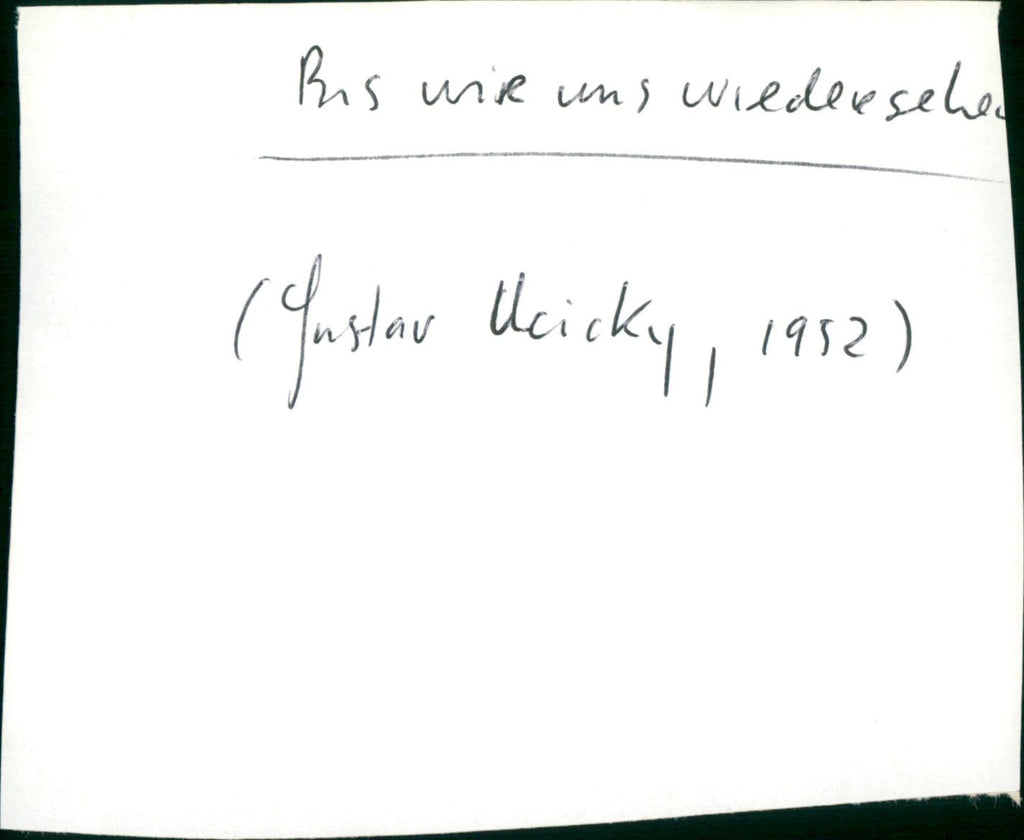 Bis wir uns wiedersehen
(Gustav Ucicky, 1952)